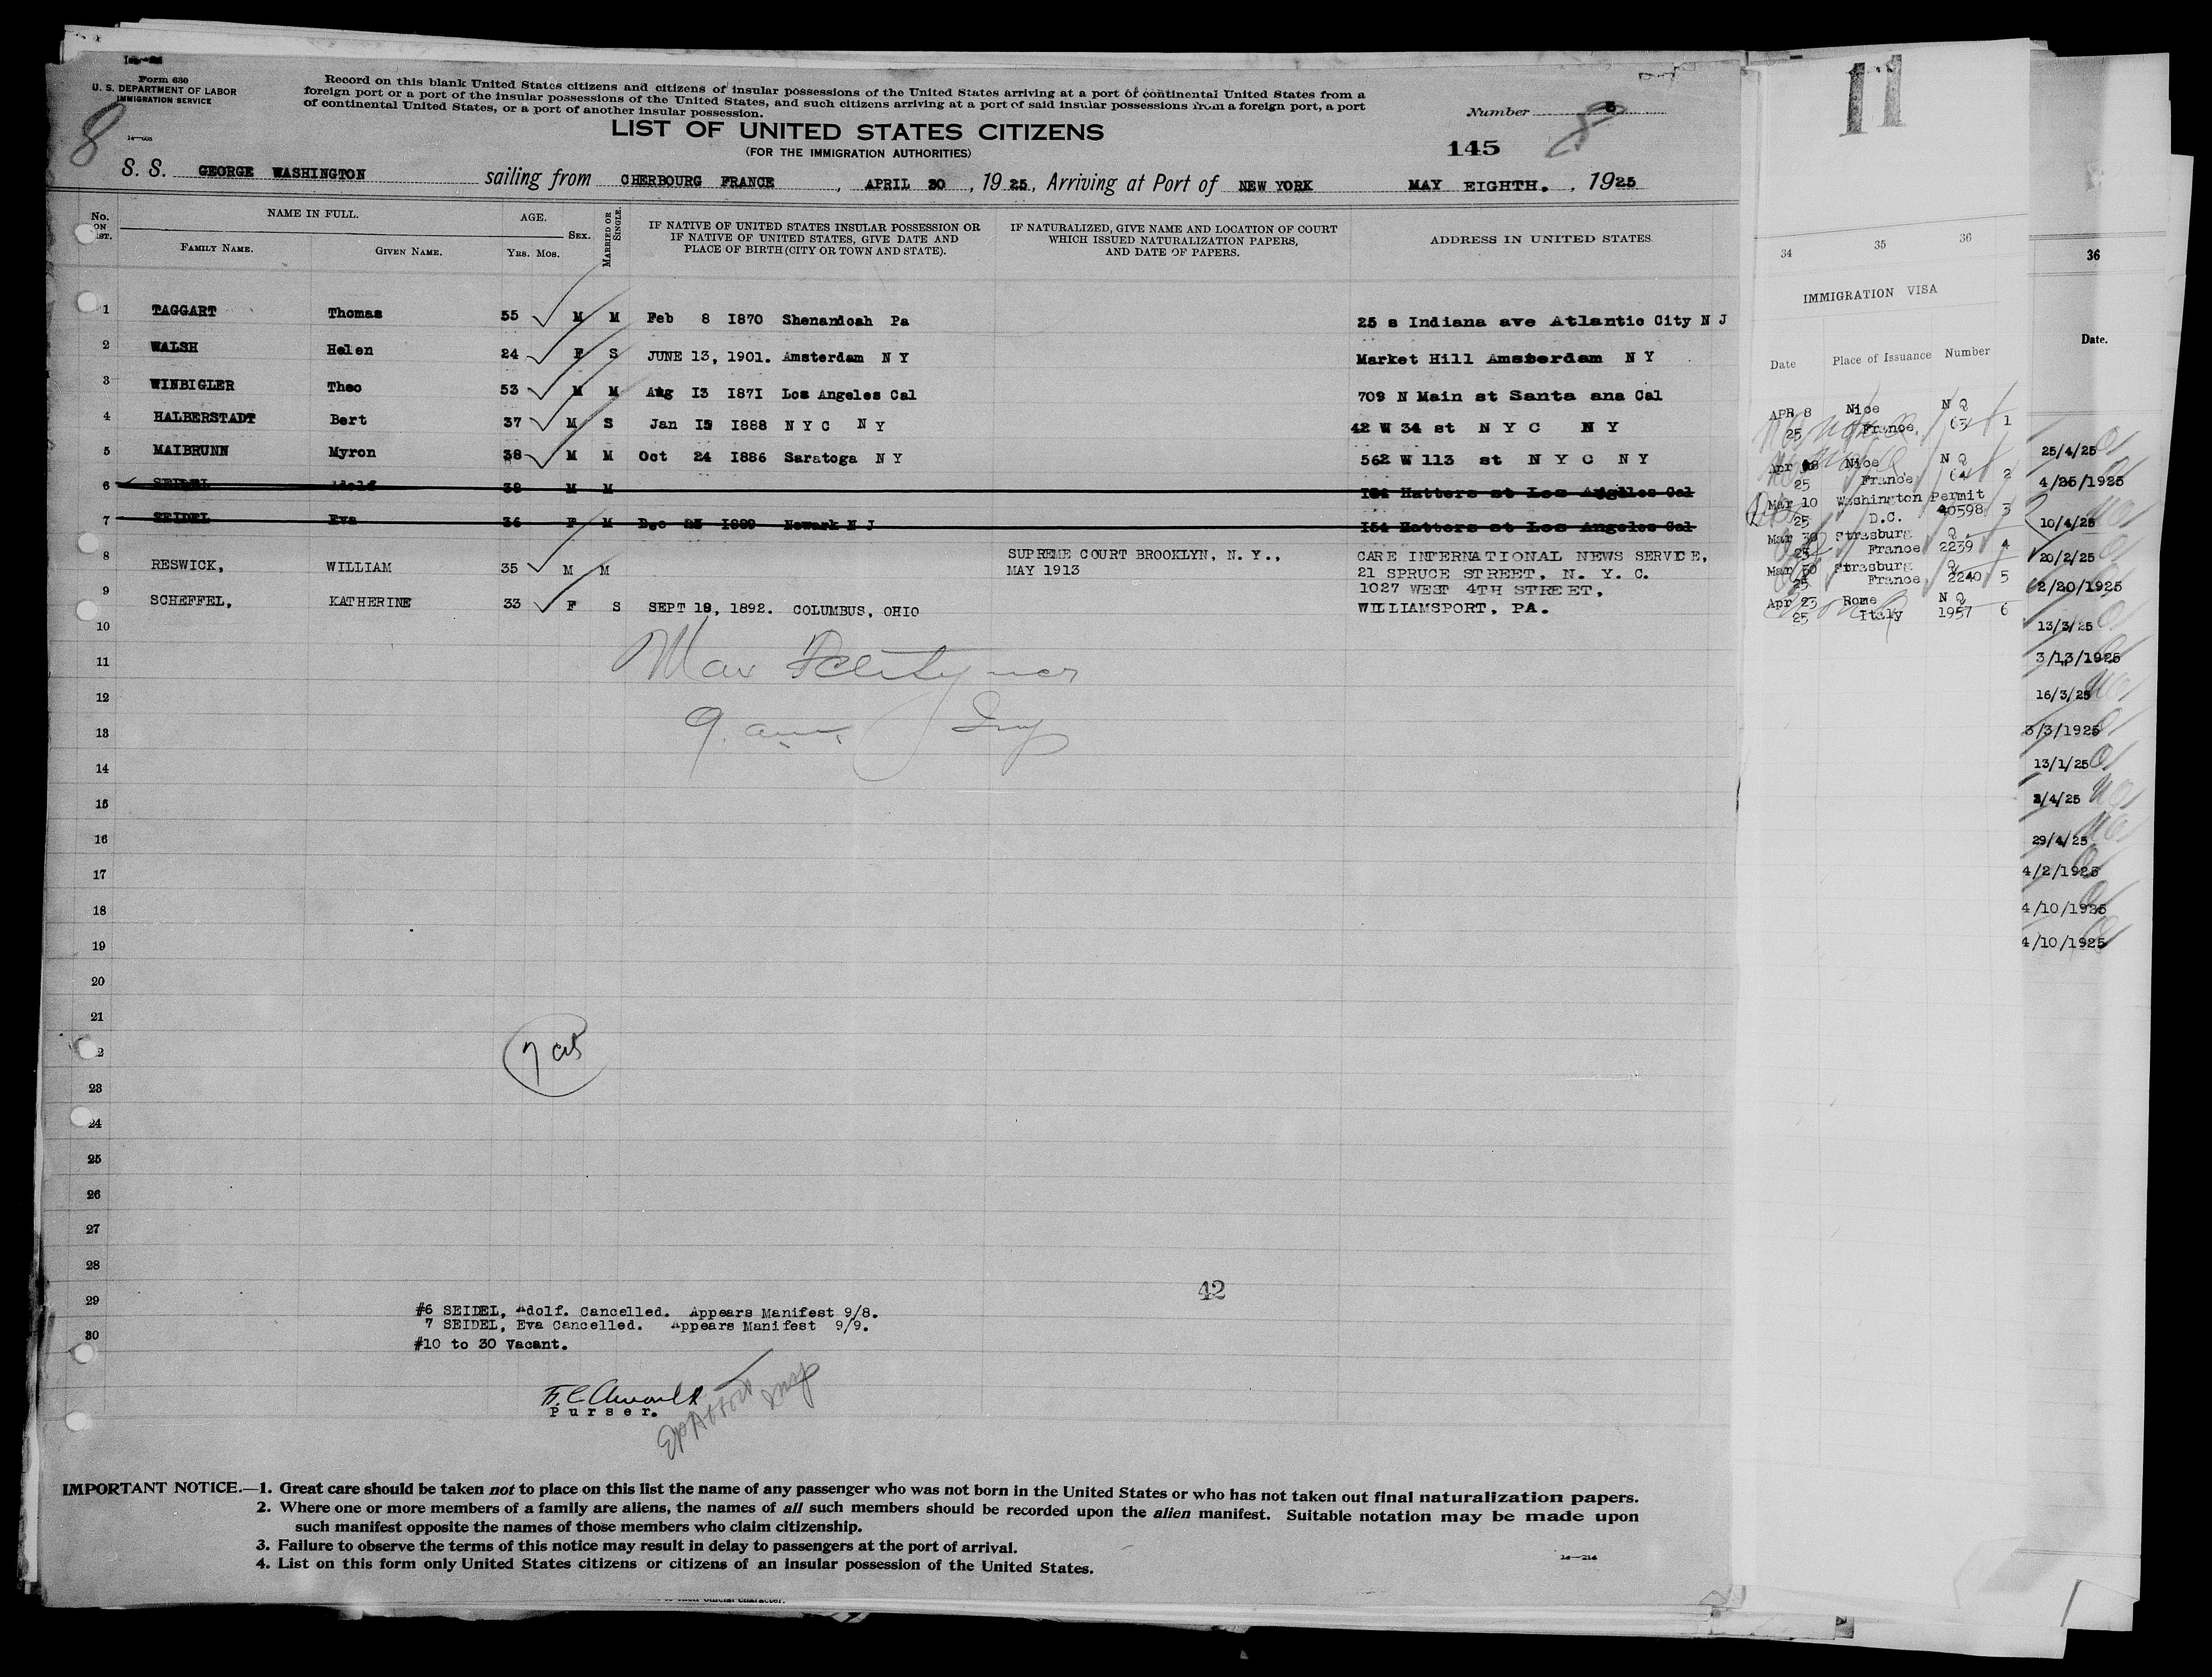 Form 630
U. S. DEPARTMENT OF LABOR
IMMIGRATION SERVICE
8
Record on this blank United States citizens and citizens of insular possessions of the United States arriving at a port of continental United States from a
foreign port or a port of the insular possessions of the United States, and such citizens arriving at a port of said insular possessions from a foreign port, a port
of continental United States, or a port of another insular possession.
LIST OF UNITED STATES CITIZENS
(FOR THE IMMIGRATION AUTHORITIES)
Number 8
145
S. S. GEORGE WASHINGTON sailing from CHERBOURG FRANCE, APRIL 30, 1925, Arriving at Port of NEW YORK MAY EIGHTH., 1925
No. ON LIST. NAME IN FULL. AGE. SEX. MARRIED OR SINGLE. IF NATIVE OF UNITED STATES INSULAR POSSESSION OR IF NATIVE OF UNITED STATES, GIVE DATE AND PLACE OF BIRTH (CITY OR TOWN AND STATE). IF NATURALIZED, GIVE NAME AND LOCATION OF COURT WHICH ISSUED NATURALIZATION PAPERS, AND DATE OF PAPERS. ADDRESS IN UNITED STATES
FAMILY NAME. GIVEN NAME. YRS. MOS.
1 TAGGART Thomas 55 M M Feb 8 1870 Shenandoah Pa 25 s Indiana ave Atlantic City N J
2 WALSH Helen 24 F S JUNE 13, 1901. Amsterdam N Y Market Hill Amsterdam N Y
3 WINBIGLER Theo 53 M M Aug 13 1871 Los Angeles Cal 709 N Main st Santa ana Cal
4 HALBERSTADT Bert 37 M S Jan 15 1888 N Y C N Y 42 W 34 st N Y C N Y
5 MAIBRUNN Myron 38 M M Oct 24 1886 Saratoga N Y 562 W 113 st N Y C N Y
6 SEIDEL Adolf 38 M M 154 Hatters st Los Angeles Cal
7 SEIDEL Eva 36 F M Dec 25 1889 Newark N J 154 Hatters st Los Angeles Cal
8 RESWICK, WILLIAM 35 M M SUPREME COURT BROOKLYN, N. Y., MAY 1913 CARE INTERNATIONAL NEWS SERVICE, 21 SPRUCE STREET, N. Y. C.
9 SCHEFFEL, KATHERINE 33 F S SEPT 18, 1892. COLUMBUS, OHIO 1027 WEST 4TH STREET, WILLIAMSPORT, PA.
10
11 Max
12
13 9. am. Insp
14
15
16
17
18
19
20
21
2
7
23
24
25
26
27
28
42
29
30
#6 SEIDEL, Adolf. Cancelled. Appears Manifest 9/8.
7 SEIDEL, Eva Cancelled. Appears Manifest 9/9.
#10 to 30 Vacant.
Purser.
Insp
IMPORTANT NOTICE.—1. Great care should be taken not to place on this list the name of any passenger who was not born in the United States or who has not taken out final naturalization papers.
2. Where one or more members of a family are aliens, the names of all such members should be recorded upon the alien manifest. Suitable notation may be made upon
such manifest opposite the names of those members who claim citizenship.
3. Failure to observe the terms of this notice may result in delay to passengers at the port of arrival.
4. List on this form only United States citizens or citizens of an insular possession of the United States.
11
34 35 36
IMMIGRATION VISA
Date Place of Issuance Number
APR 8 Nice N Q
25 France 63 1
Apr 8 Nice N Q
25 France 64 2
Mar 10 Washington Permit
25 D.C. 40598 3
Mar 30 Strasburg Q
25 France 2239 4
Mar 30 Strasburg Q
25 France 2240 5
Apr 23 Rome N Q
25 Italy 1957 6
36
Date.
25/4/25
4/25/1925
10/4/25
20/2/25
2/20/1925
13/3/25
3/13/1925
16/3/25
3/3/1925
13/1/25
2/4/25
29/4/25
4/2/1925
4/10/1925
4/10/1925